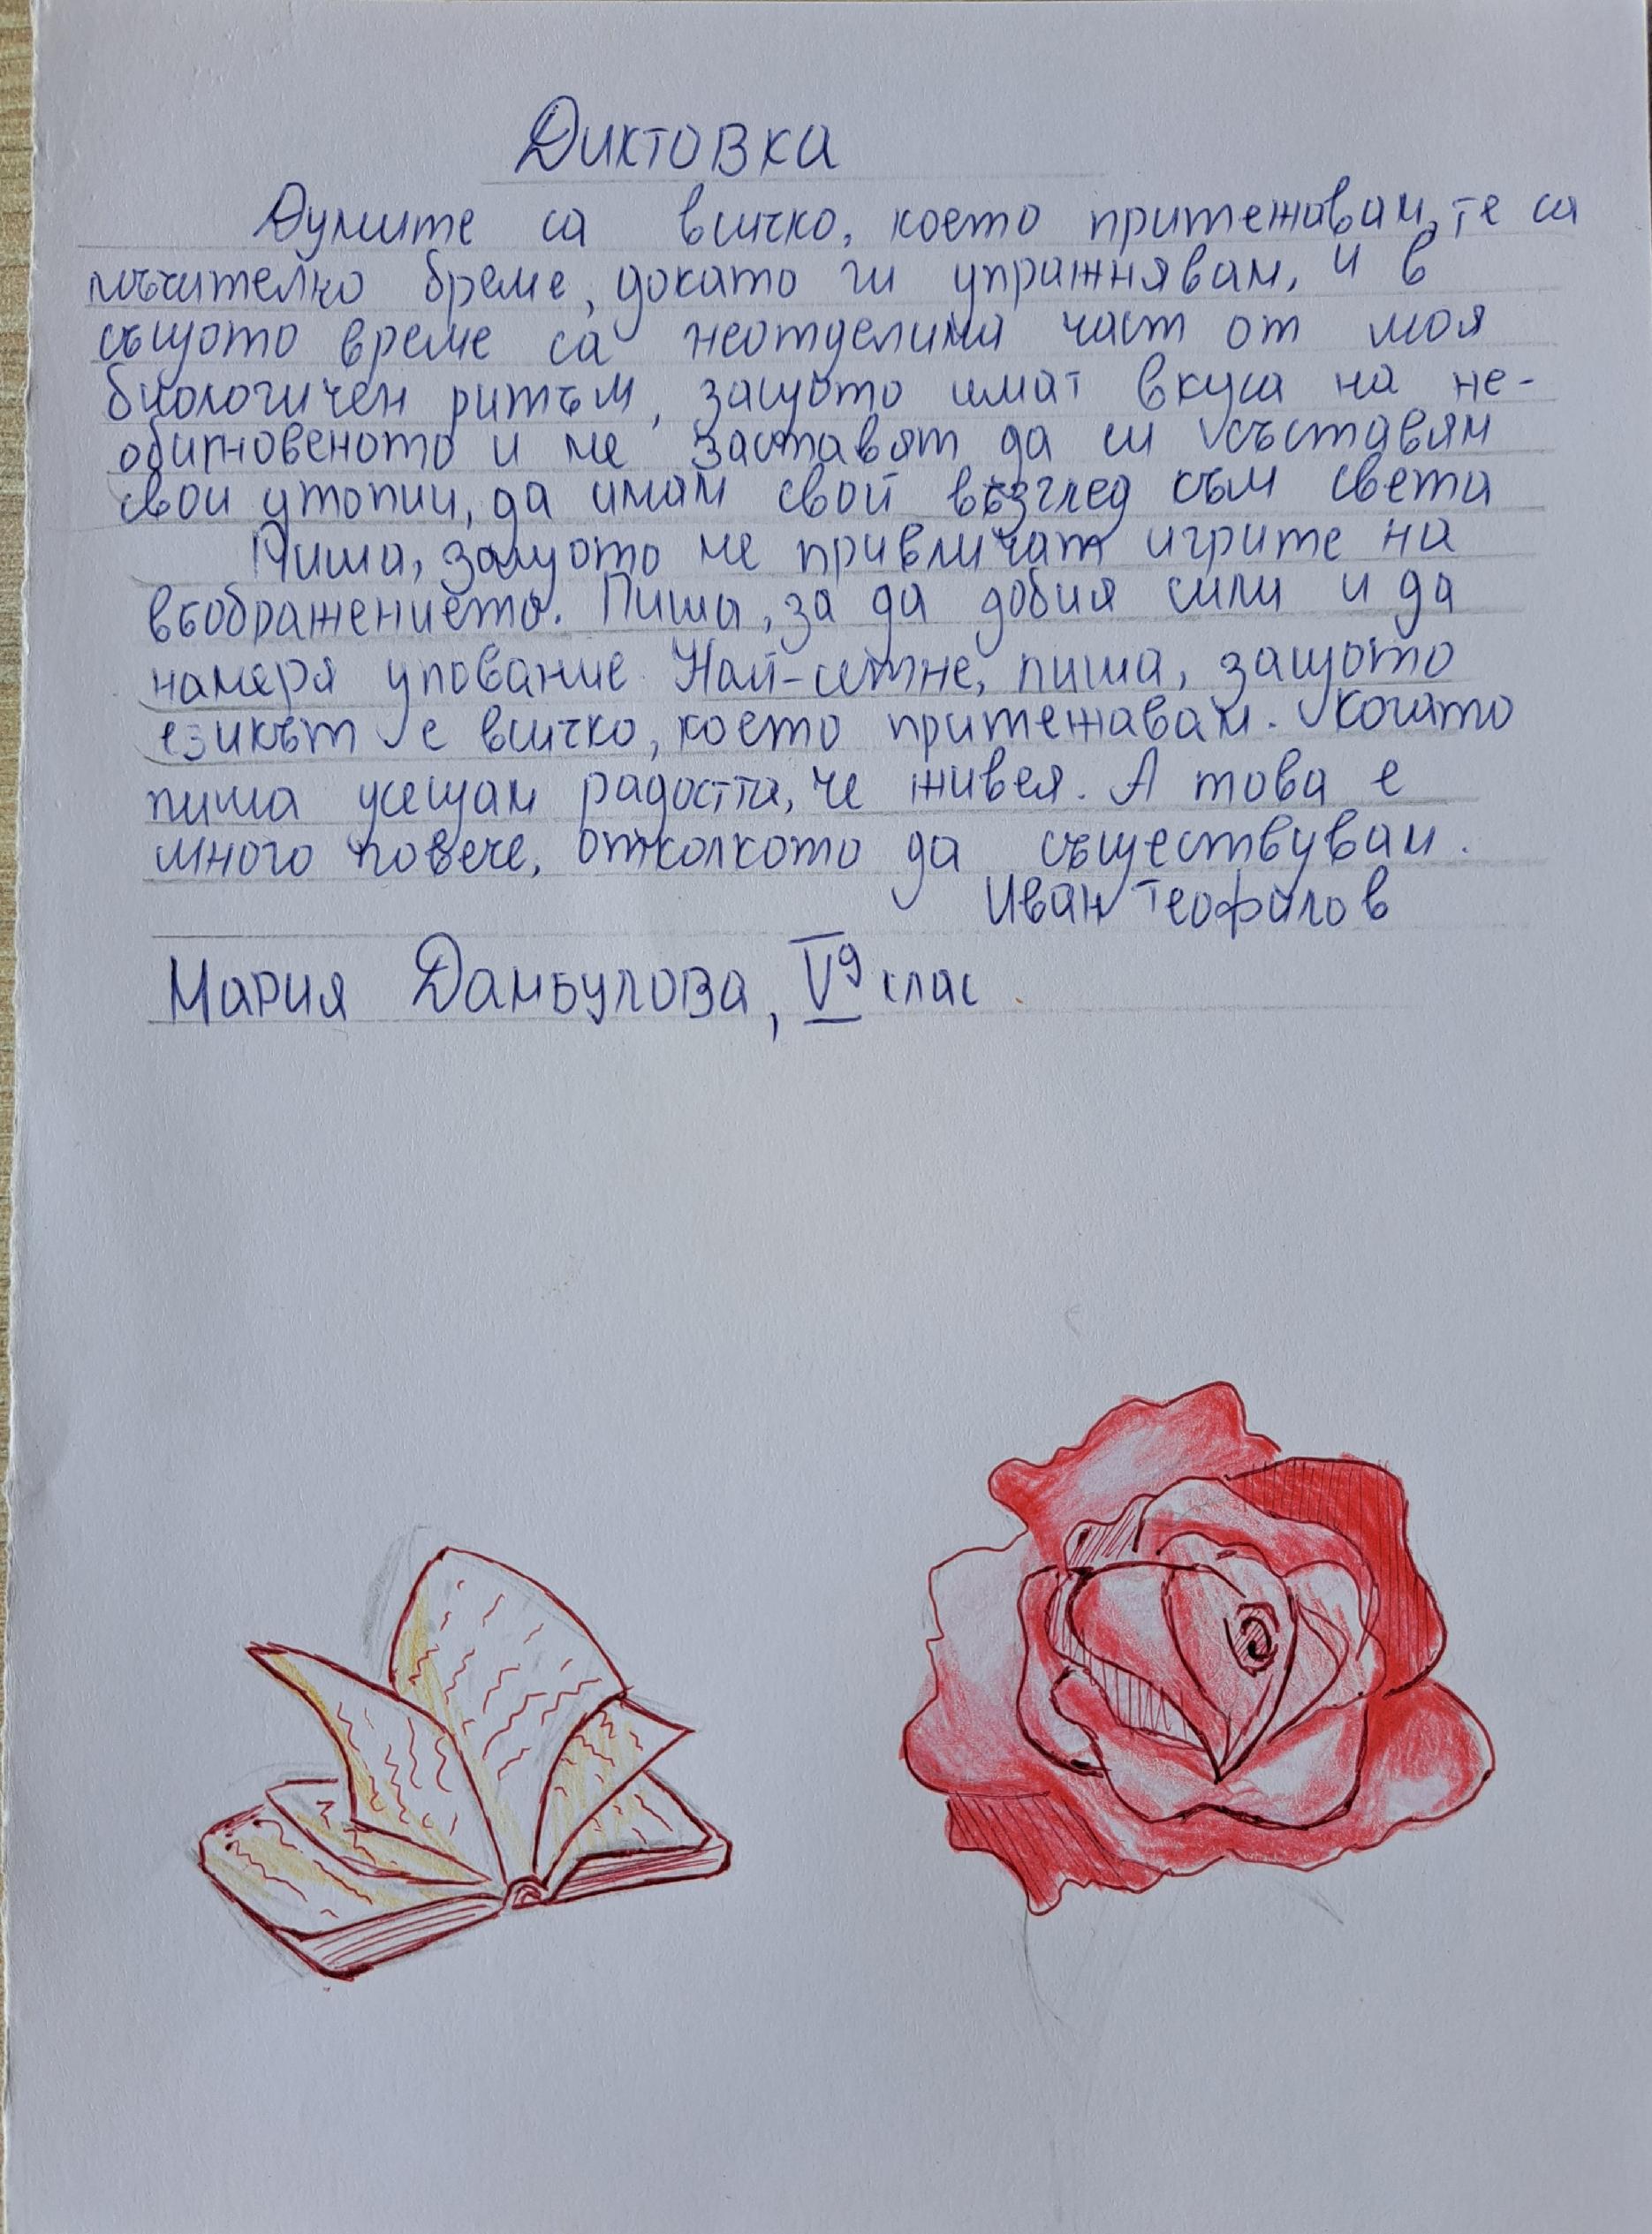 Диктовка
Думите са всичко, което притежавам, те са
мъчително бреме, докато ги упражнявам, и в
същото време са неотделима част от моя
биологичен ритъм, защото имат вкуса на не-
обикновеното и ме заставят да си съставям
свои утопии, да имам свой възглед към света
Пиша, защото ме привличат игрите на
въображението. Пиша, за да добия сили и да
намеря упование. Най-сетне, пиша, защото
езикът е всичко, което притежавам. Когато
пиша усещам радостта, че живея. А това е
много повече, отколкото да съществувам.
Иван Теофилов
Мария Дамбулова, V д клас